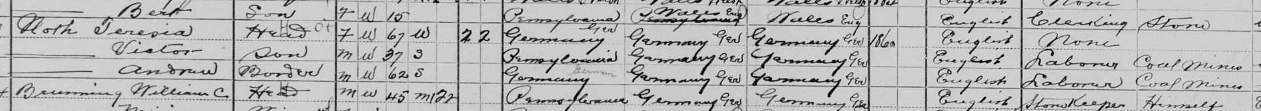 Bert Son F W 15 Pennsylvania Wales Eng Wales Eng English Clerking Store
Noth Teresia Head F W 67 W 22 Germany Ger Germany Ger Germany Ger 1860 English None
Victor Son M W 37 S Pennsylvania Germany Ger Germany Ger English Laborer Coal Mines
Andrew Border M W 62 S Germany Germany Ger Germany Ger English Laborer Coal Mines
Brunning William C Head M W 45 M 22 Pennsylvania Germany Ger Germany Ger English Storekeeper Himself